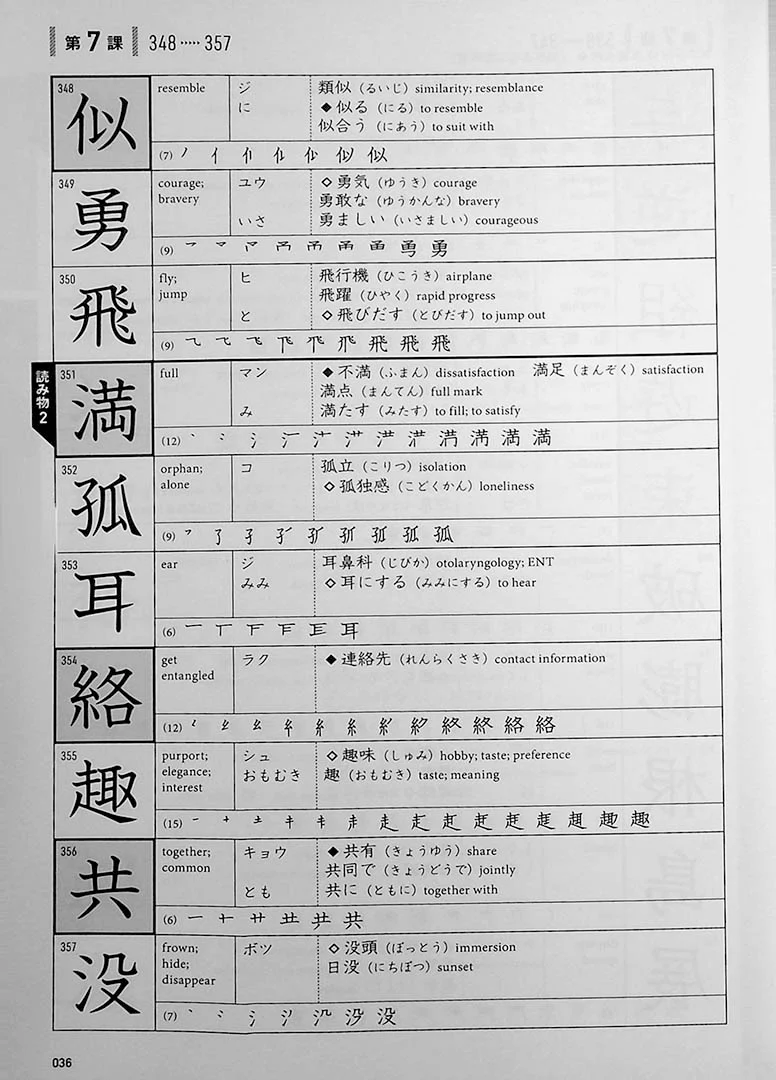 第7課 348·····357
348 似 resemble ジ 類似（るいじ）similarity; resemblance
に ◆似る（にる）to resemble
似合う（にあう）to suit with
(7)
349 勇 courage; bravery ユウ ◇勇気（ゆうき）courage
勇敢な（ゆうかんな）bravery
いさ 勇ましい（いさましい）courageous
(9)
350 飛 fly; jump ヒ 飛行機（ひこうき）airplane
飛躍（ひやく）rapid progress
と ◇飛びだす（とびだす）to jump out
(9)
読み物2
351 満 full マン ◆不満（ふまん）dissatisfaction 満足（まんぞく）satisfaction
満点（まんてん）full mark
み 満たす（みたす）to fill; to satisfy
(12)
352 孤 orphan; alone コ 孤立（こりつ）isolation
◇孤独感（こどくかん）loneliness
(9)
353 耳 ear ジ 耳鼻科（じびか）otolaryngology; ENT
みみ ◇耳にする（みみにする）to hear
(6)
354 絡 get entangled ラク ◆連絡先（れんらくさき）contact information
(12)
355 趣 purport; elegance; interest シュ ◇趣味（しゅみ）hobby; taste; preference
おもむき 趣（おもむき）taste; meaning
(15)
356 共 together; common キョウ ◆共有（きょうゆう）share
共同で（きょうどうで）jointly
とも 共に（ともに）together with
(6)
357 没 frown; hide; disappear ボツ ◇没頭（ぼっとう）immersion
日没（にちぼつ）sunset
(7)
036